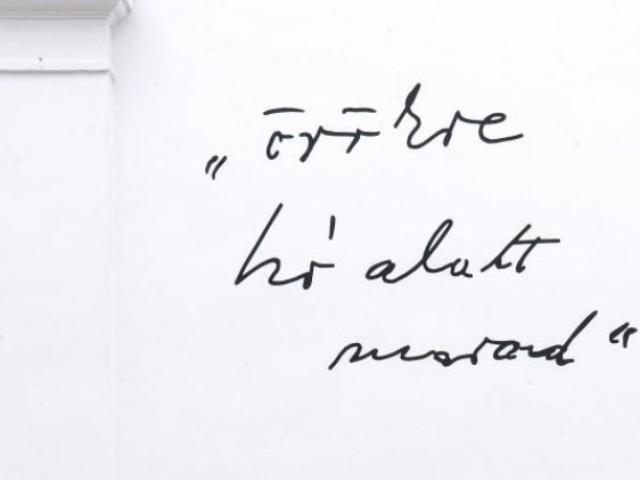 „örökre
hó alatt
marad“